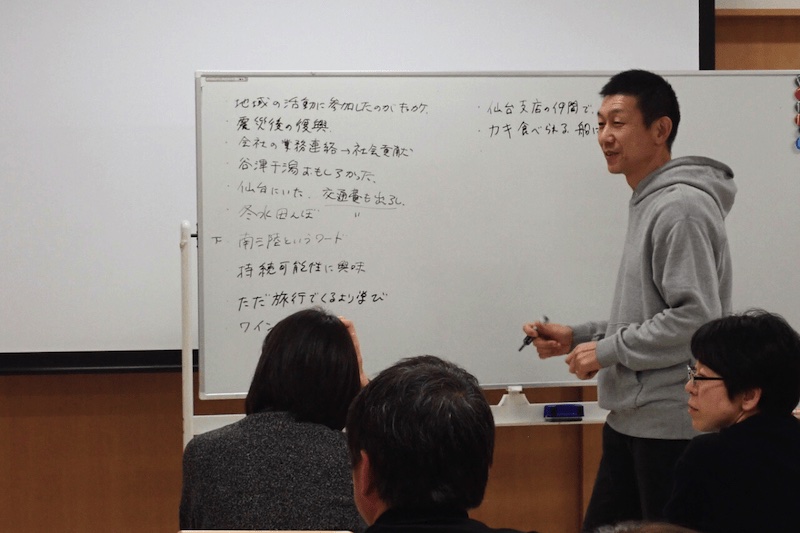 ・地域の活動に参加したのがキッカケ。
・震災後の復興
・会社の業務連絡→社会貢献
・谷津干潟おもしろかった。
・仙台にいた、交通費も出るし、
・冬水田んぼ 〃
下 南三陸というワード
持続可能性に興味
ただ旅行でくるより学び
・ワイン
・仙台支店の仲間で、
・カキ食べられる 船に